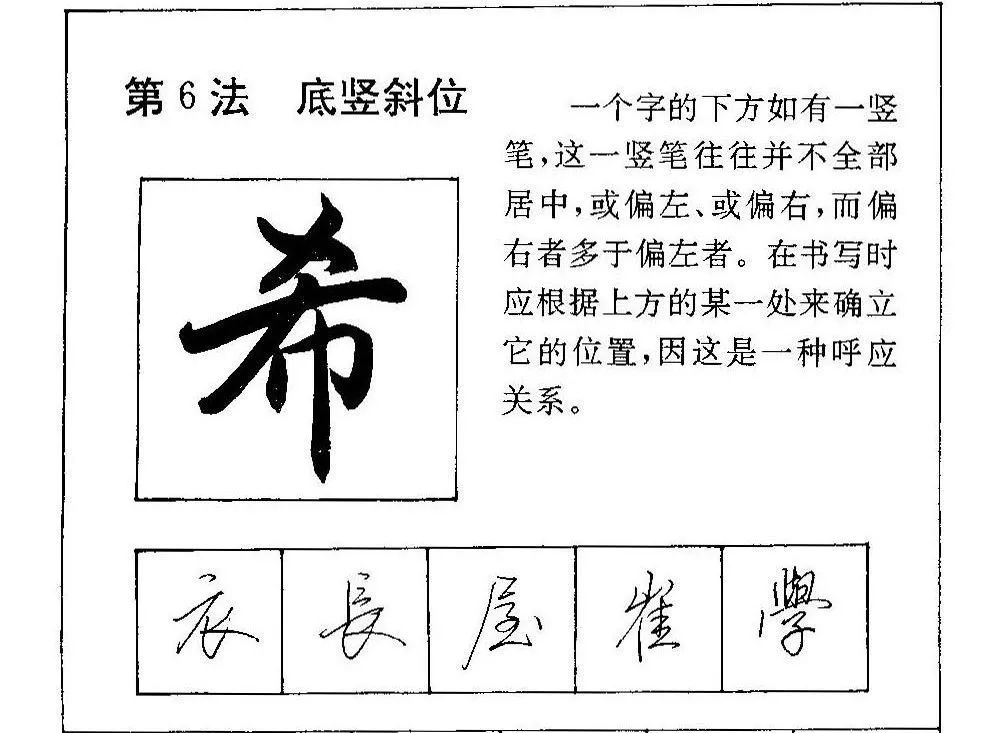 第6法 底竖斜位
一个字的下方如有一竖
笔,这一竖笔往往并不全部
居中,或偏左、或偏右,而偏
右者多于偏左者。在书写时
应根据上方的某一处来确立
它的位置,因这是一种呼应
关系。
希
衣 長 屋 崔 學